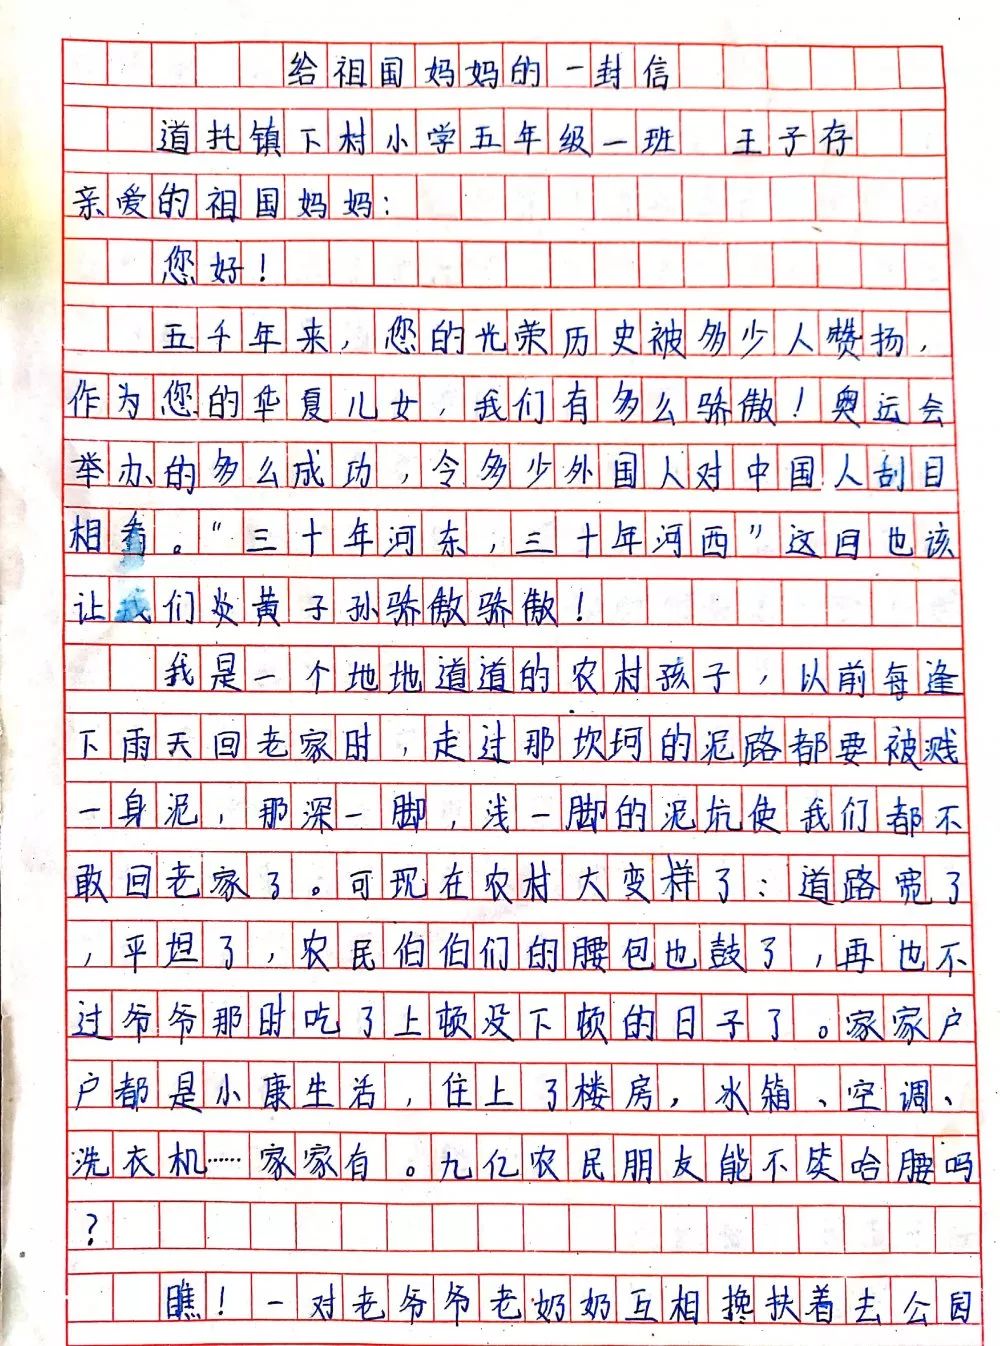 给祖国妈妈的一封信
道托镇下村小学五年级一班 王子存
亲爱的祖国妈妈:
您好!
五千年来,您的光荣历史被多少人赞扬,
作为您的华夏儿女,我们有多么骄傲!奥运会
举办的多么成功,令多少外国人对中国人刮目
相看。“三十年河东,三十年河西”这回也该
让我们炎黄子孙骄傲骄傲!
我是一个地地道道的农村孩子,以前每逢
下雨天回老家时,走过那坎坷的泥路都要被溅
一身泥,那深一脚,浅一脚的泥坑使我们都不
敢回老家了。可现在农村大变样了:道路宽了
,平坦了,农民伯伯们的腰包也鼓了,再也不
过爷爷那时吃了上顿没下顿的日子了。家家户
户都是小康生活,住上了楼房,冰箱、空调、
洗衣机……家家有。九亿农民朋友能不笑哈腰吗
?
瞧!一对老爷爷老奶奶互相搀扶着去公园